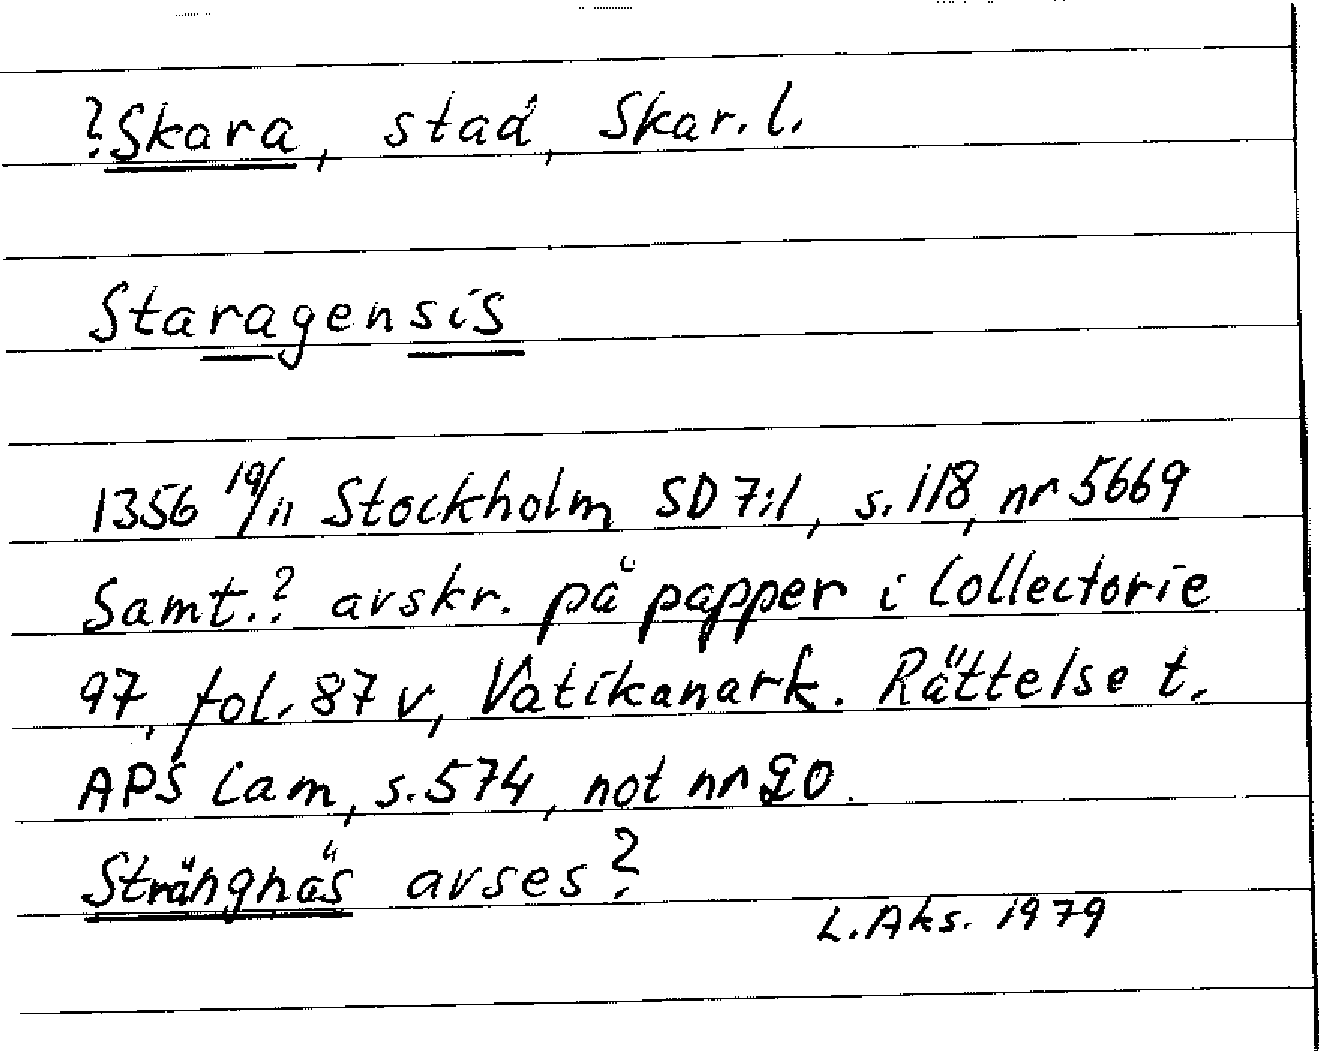 ?Skara, stad, Skar. l.
Staragensis
1356 19/11 Stockholm SD 7:1, s. 118, nr 5669
Samt.? avskr. på papper i Collectorie
97, fol. 87 v, Vatikanark. Rättelse t.
APS Cam, s. 574, not nr 20.
Strängnäs avses?
L. Aks. 1979